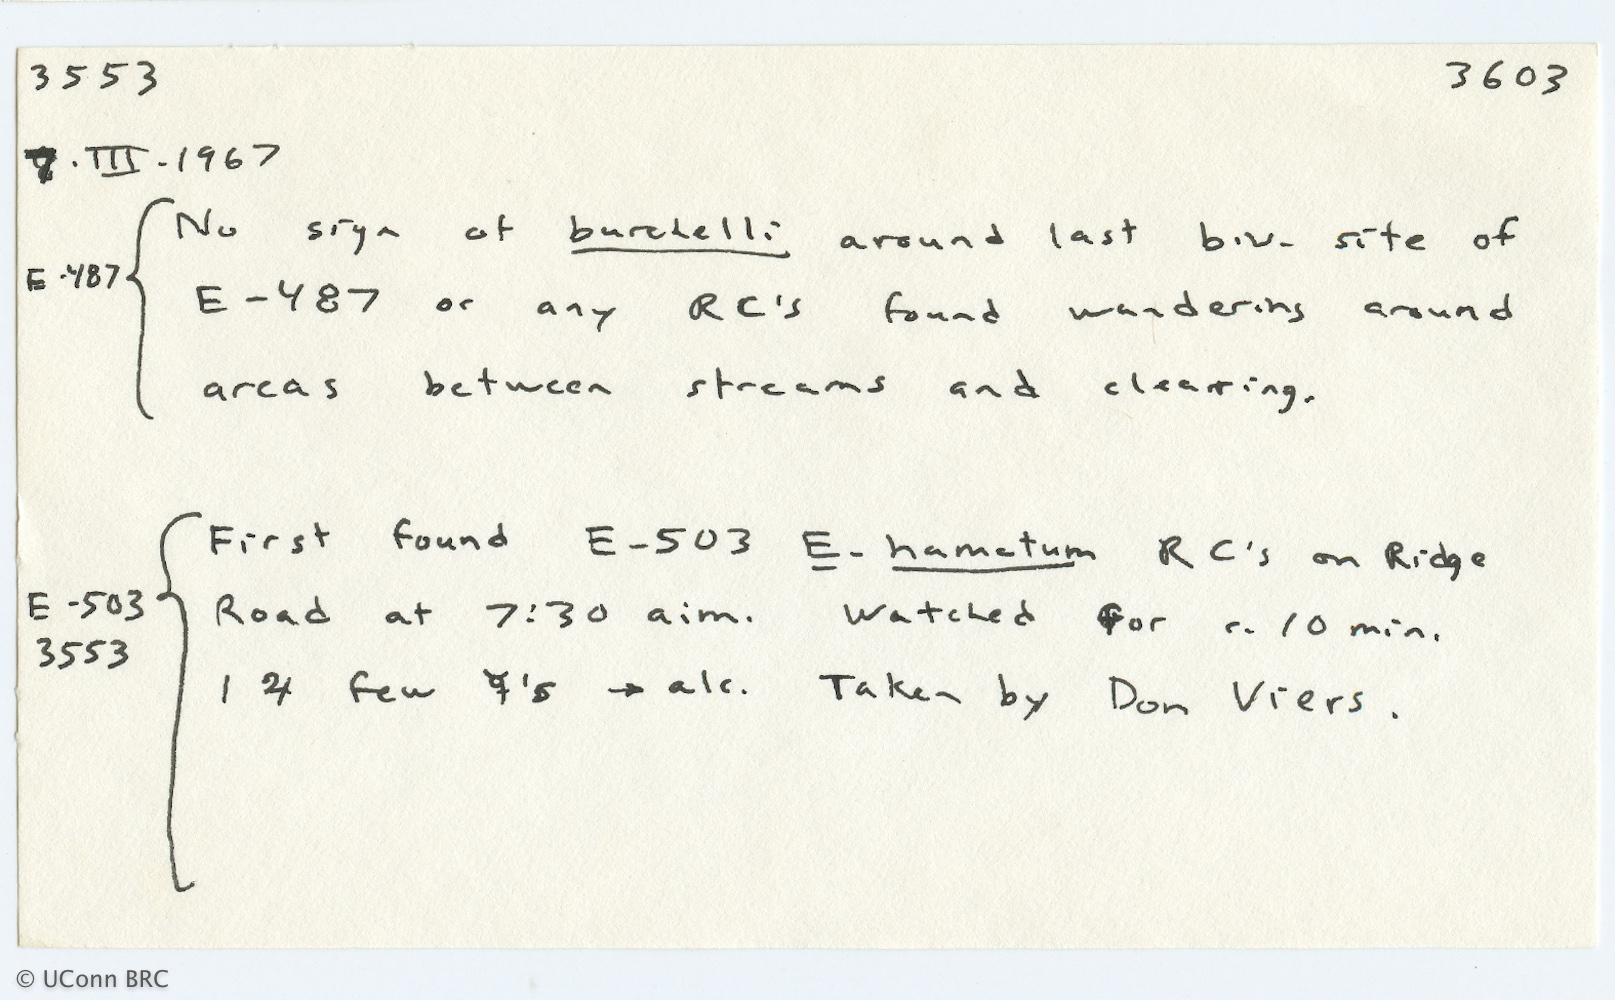 3553 3603
7.III-1967
No sign of burchelli around last biv. site of
E-487
E-487 or any RC's found wandering around
areas between streams and clearing.
First found E-503 E. hamatum RC's on Ridge
E-503
Road at 7:30 a.m. Watched for c. 10 min.
3553
1 few → alc. Taken by Don Viers.
© UConn BRC